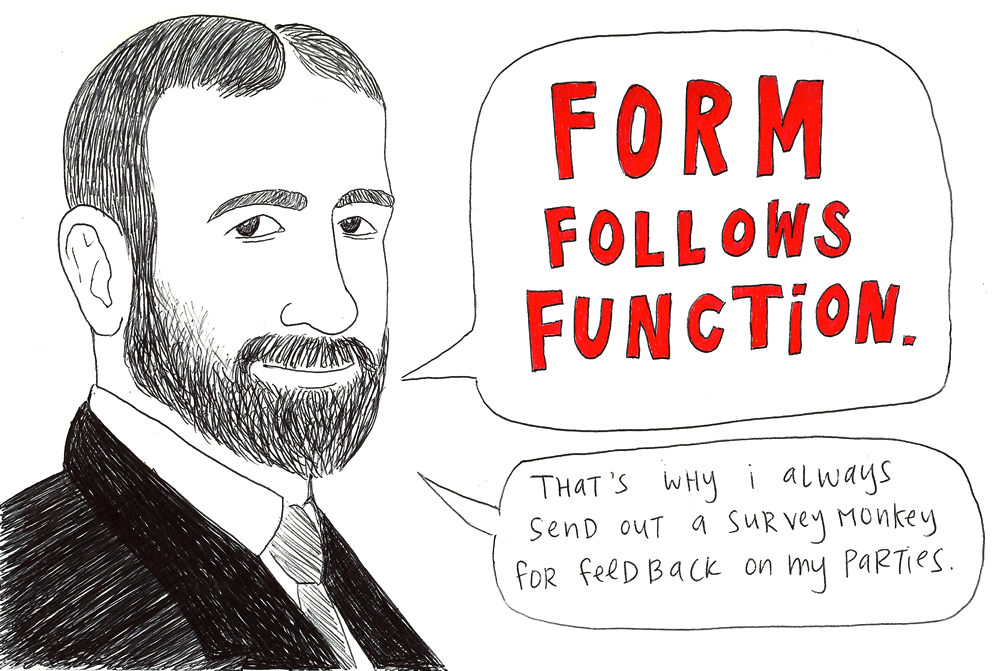 FORM
FOLLOWS
FUNCTiON.
THAT'S WHY i ALWAYS
SEND OUT A SURVEY MONKEY
FOR FEEDBACK ON MY PARTIES.